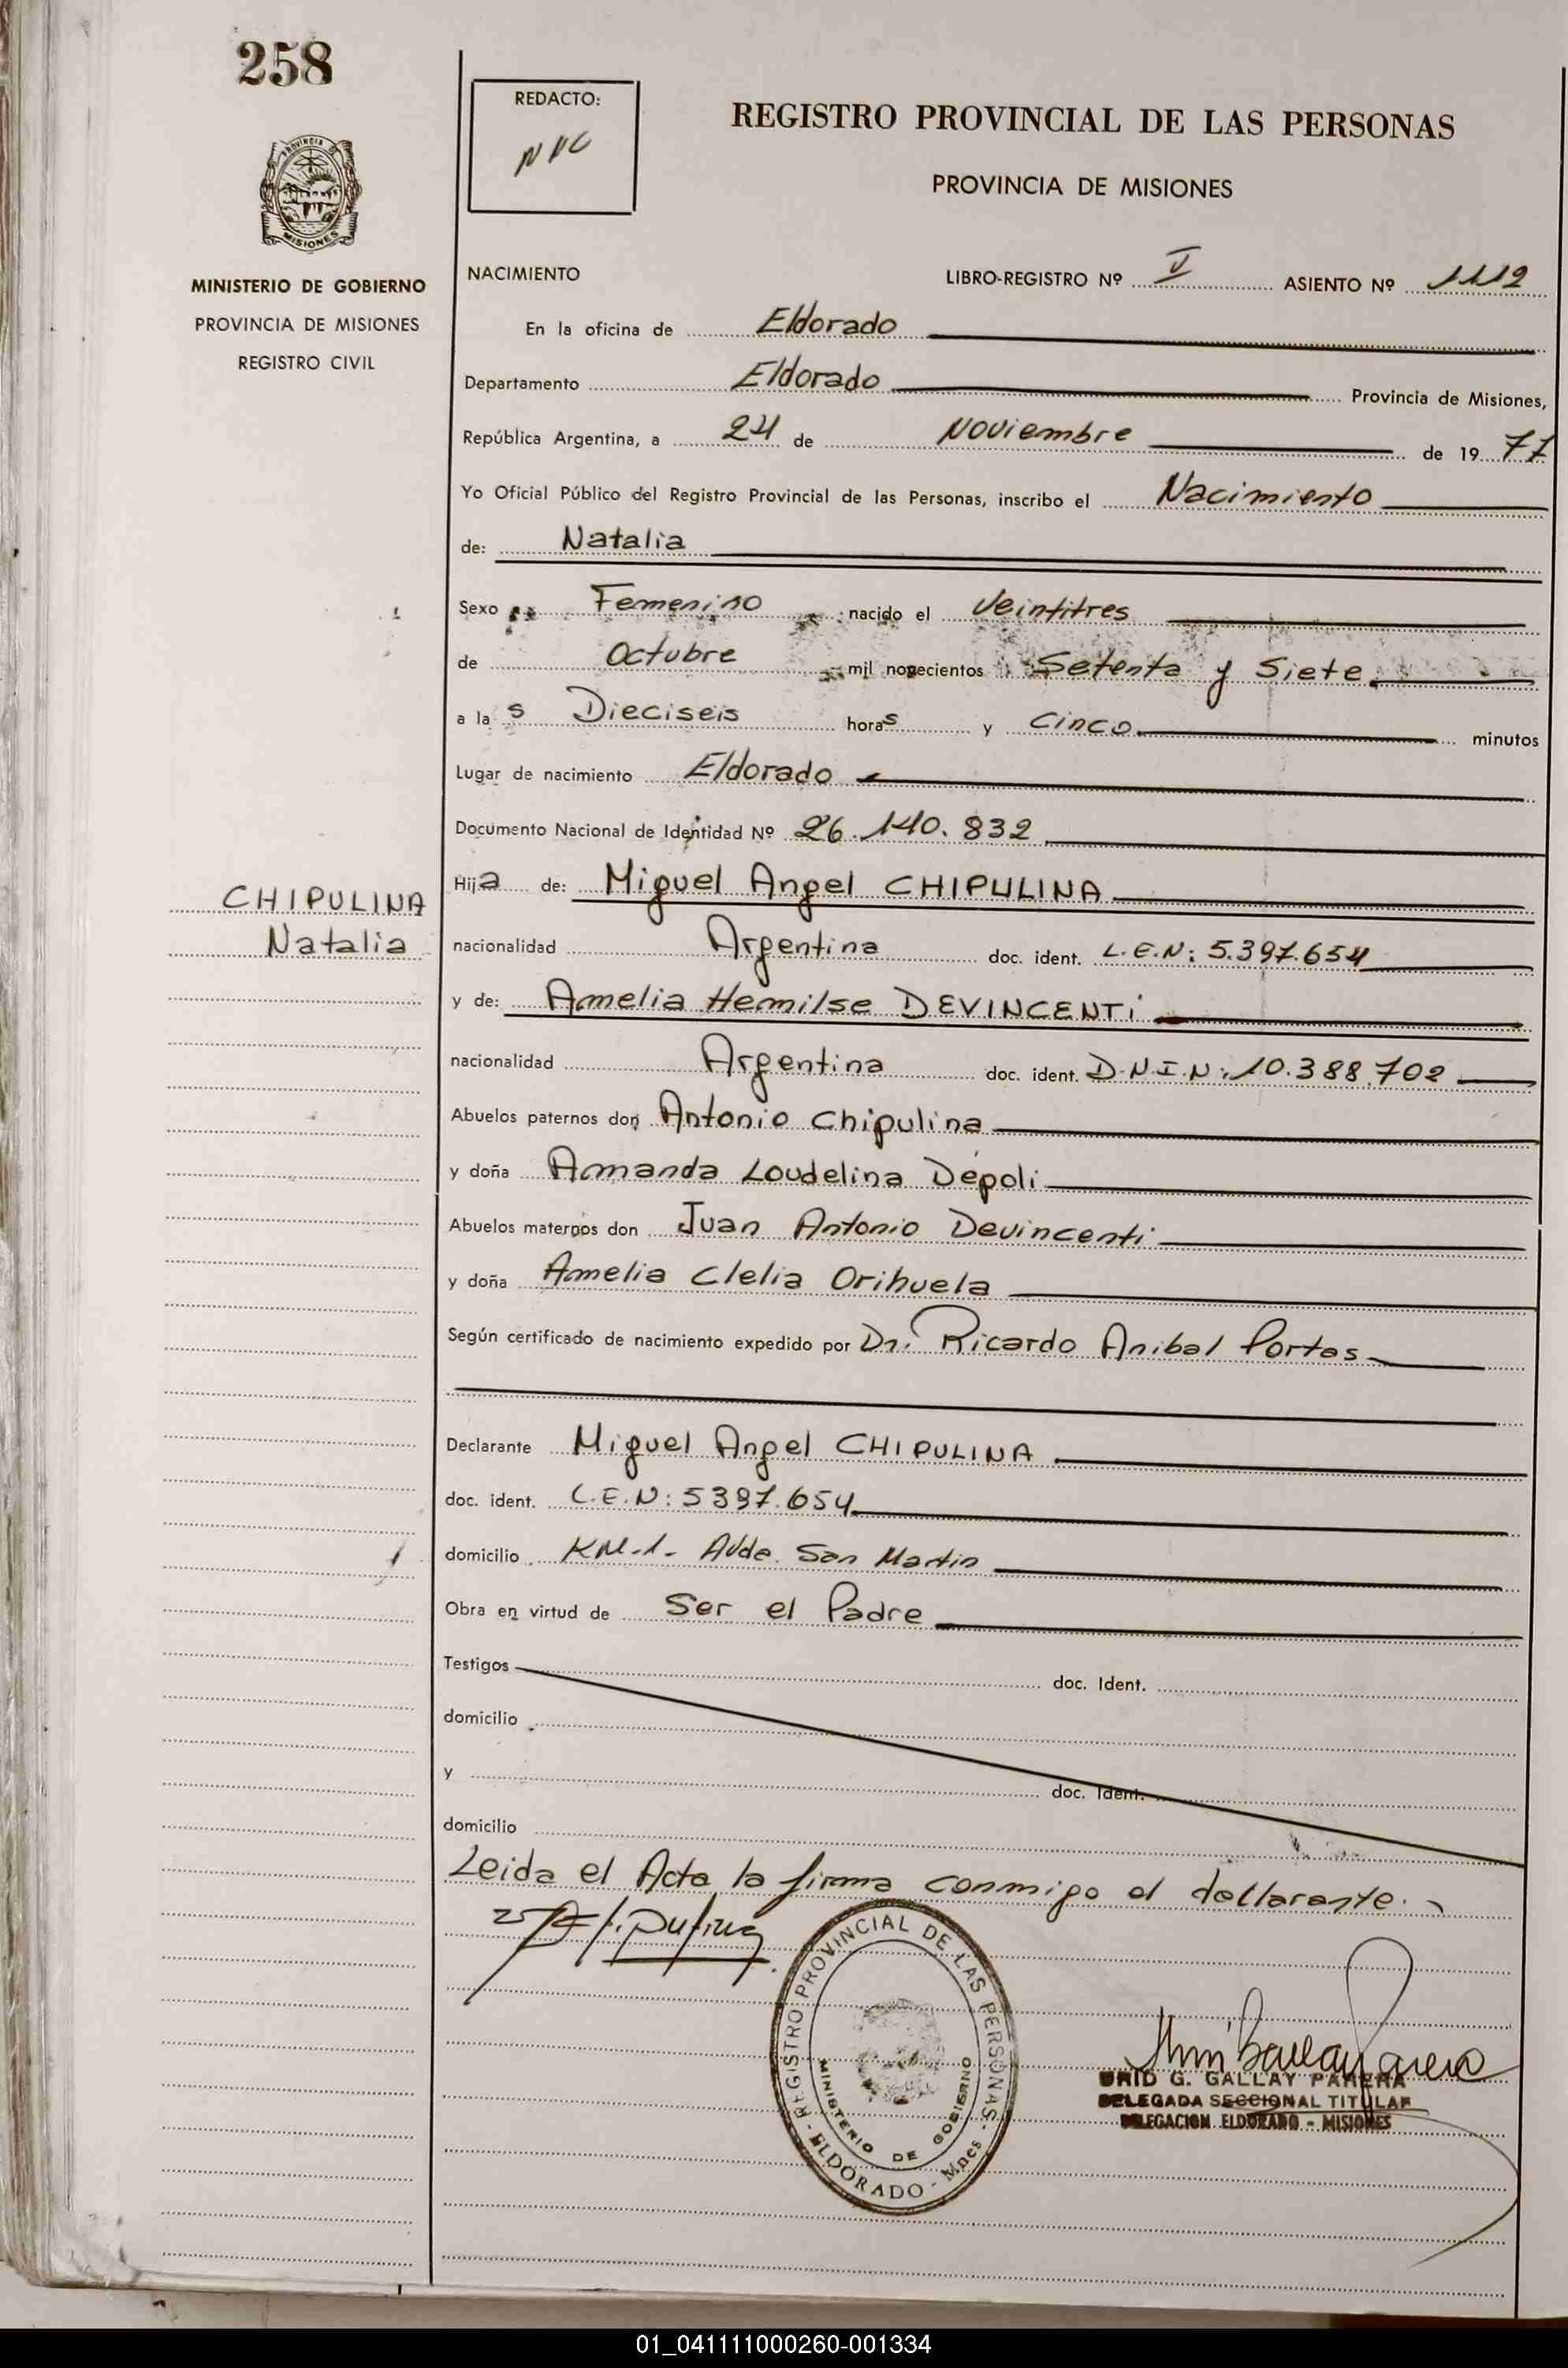 258
REDACTO:
REGISTRO PROVINCIAL DE LAS PERSONAS
PROVINCIA DE MISIONES
PROVINCIA D MISIONES
MINISTERIO DE GOBIERNO
PROVINCIA DE MISIONES
REGISTRO CIVIL
NACIMIENTO LIBRO-REGISTRO Nº V ASIENTO Nº 1112
En la oficina de Eldorado
Departamento Eldorado Provincia de Misiones,
República Argentina, a 24 de Noviembre de 19 77
Yo Oficial Público del Registro Provincial de las Personas, inscribo el Nacimiento
de: Natalia
Sexo Femenino nacido el Veintitres
de Octubre mil novecientos Setenta y Siete
a las Dieciseis horas y Cinco minutos
Lugar de nacimiento Eldorado
Documento Nacional de Identidad Nº 26.140.832
CHIPULINA
Natalia
Hija de: Miguel Angel CHIPULINA
nacionalidad Argentina doc. ident. L.E.N: 5.397.654
y de: Amelia Hemilse DEVINCENTi
nacionalidad Argentina doc. ident. D.N.I.N: 10.388.702
Abuelos paternos don Antonio Chipulina
y doña Amanda Loudelina Depoli
Abuelos maternos don Juan Antonio Devincenti
y doña Amelia Clelia Orihuela
Según certificado de nacimiento expedido por Dr. Ricardo Anibal Portas
Declarante Miguel Angel CHIPULINA
doc. ident. L.E.N: 5397.654
domicilio KM-1- Avda. San Martin
Obra en virtud de Ser el Padre
Testigos doc. Ident.
domicilio
y doc. Ident.
domicilio
Leida el Acta la firma conmigo el declarante.
REGISTRO PROVINCIAL DE LAS PERSONAS
MINISTERIO DE GOBIERNO
ELDORADO - Mnes
G. GALLAY PARERA
DELEGADA SECCIONAL TITULAR
DELEGACION ELDORADO - MISIONES
01_041111000260-001334